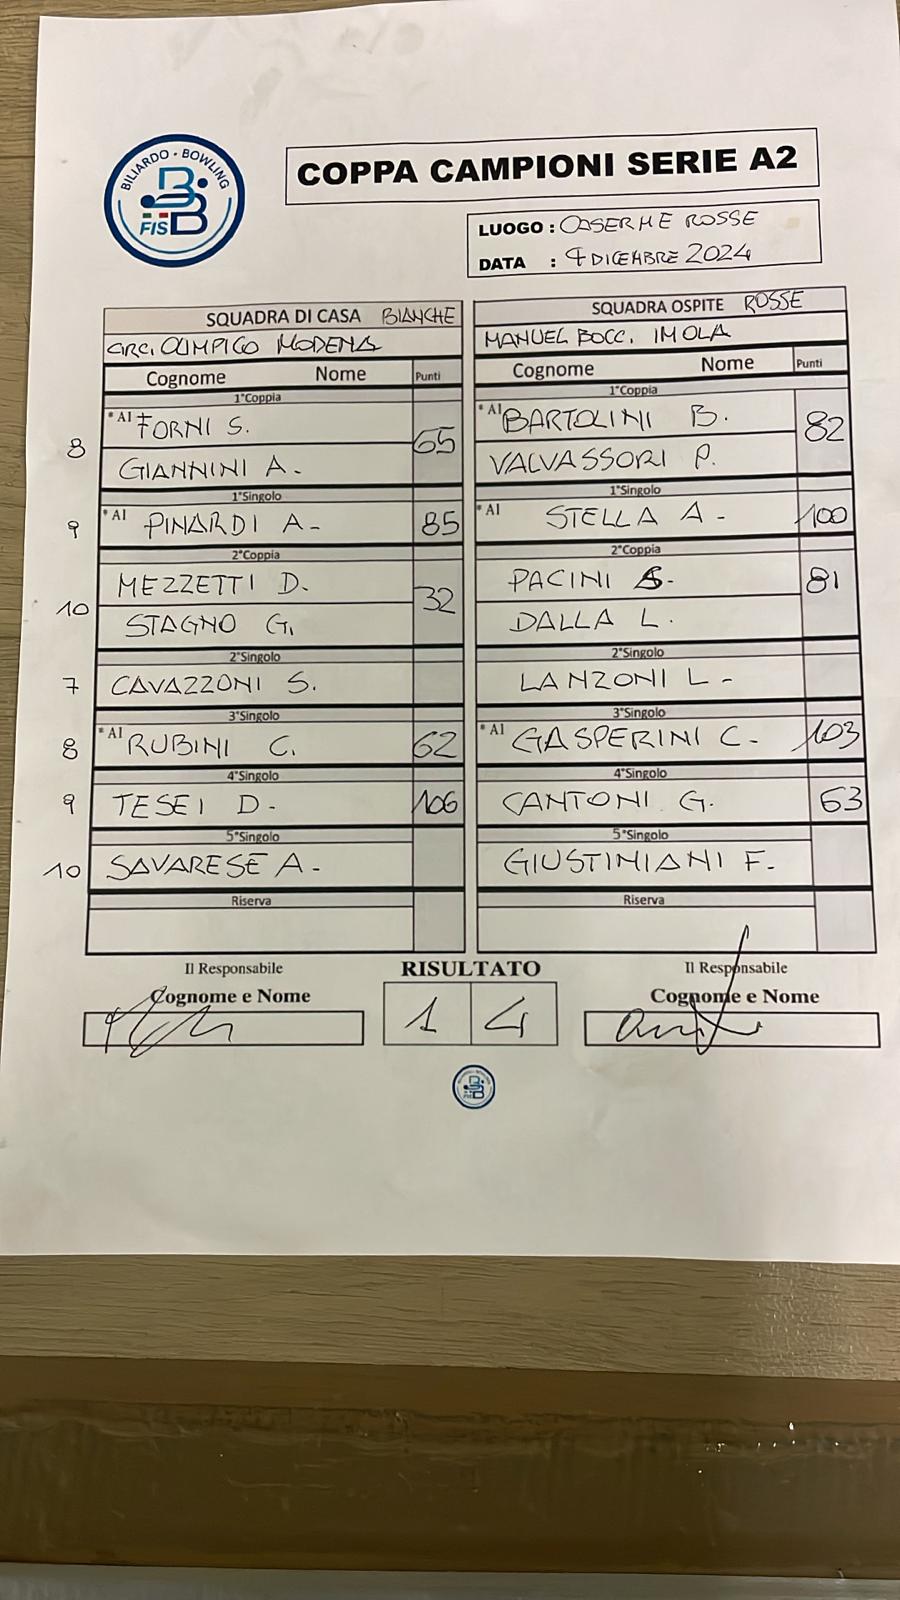 BILIARDO • BOWLING
FISBB
COPPA CAMPIONI SERIE A2
LUOGO : CASERME ROSSE
DATA : 4 DICEMBRE 2024
SQUADRA DI CASA BIANCHE
SQUADRA OSPITE ROSSE
CIRC. OLIMPICO MODENA
MANUEL BOCC. IMOLA
Cognome Nome Punti
Cognome Nome Punti
1°Coppia
1°Coppia
8 * AI FORNI S. 65
* AI BARTOLINI B. 82
GIANNINI A.
VALVASSORI P.
1°Singolo
1°Singolo
9 * AI PINARDI A- 85
* AI STELLA A- 100
2°Coppia
2°Coppia
10 MEZZETTI D. 32
PACINI S. 81
STAGNO G.
DALLA L.
2°Singolo
2°Singolo
7 CAVAZZONI S.
LANZONI L-
3°Singolo
3°Singolo
8 * AI RUBINI C. 62
* AI GASPERINI C- 103
4°Singolo
4°Singolo
9 TESEI D- 106
CANTONI G. 63
5°Singolo
5°Singolo
10 SAVARESE A-
GIUSTINIANI F.
Riserva
Riserva
Il Responsabile
RISULTATO
Il Responsabile
Cognome e Nome
Cognome e Nome
1 4